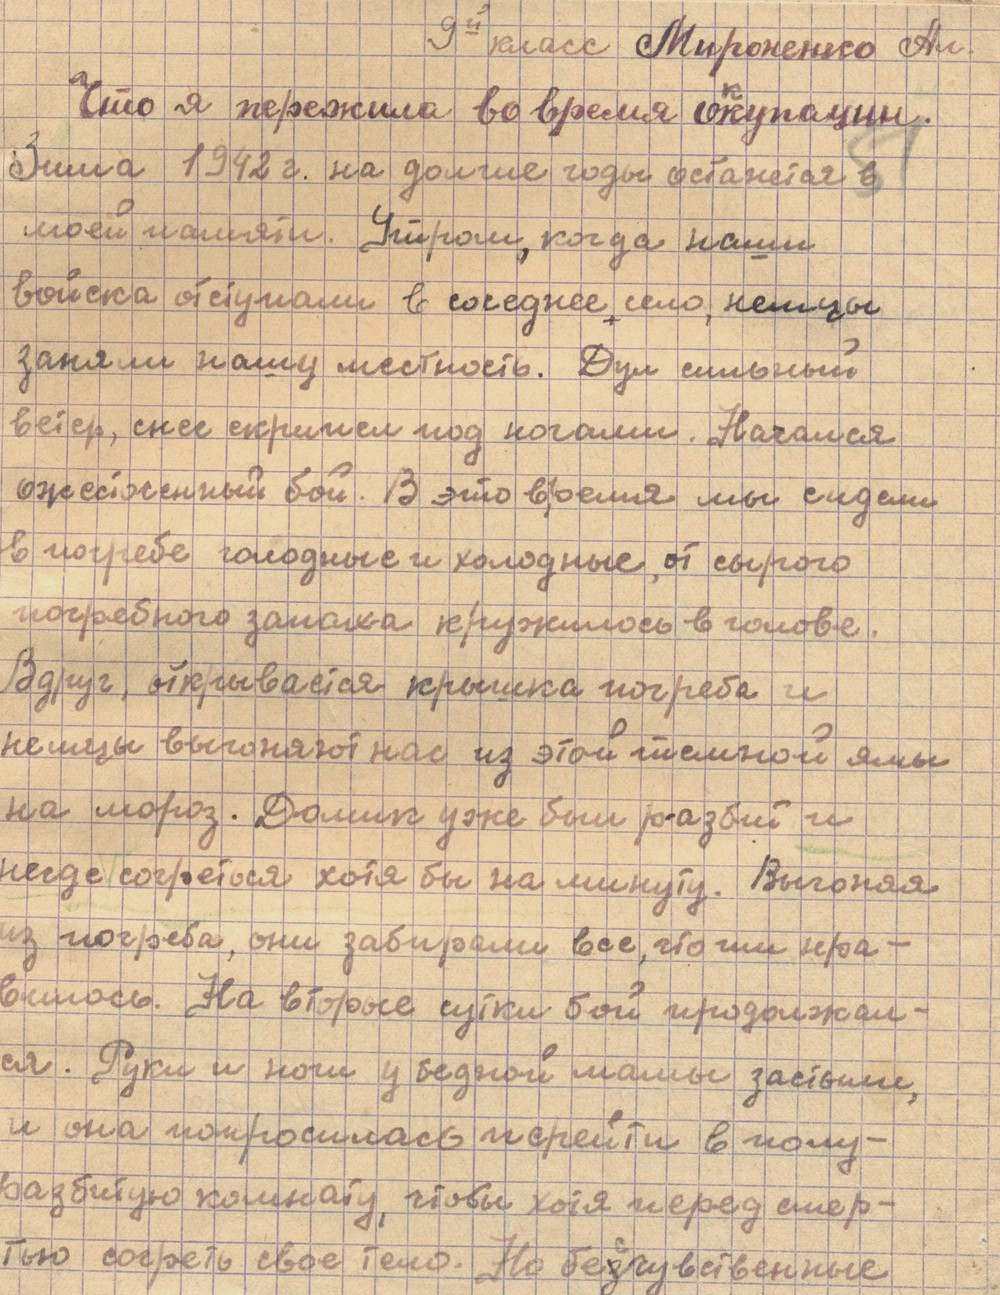 9й класс Мироненко Ал.
Что я пережила во время оккупации.
Зима 1942 г. на долгие годы останется в
моей памяти. Утром, когда наши
войска отступали в соседнее село, немцы
заняли нашу местность. Дул сильный
ветер, снег скрипел под ногами. Начался
ожесточенный бой. В это время мы сидели
в погребе голодные и холодные, от сырого
погребного запаха кружилось в голове.
Вдруг, открывается крышка погреба и
немцы выгоняют нас из этой темной ямы
на мороз. Домик уже был разбит и
негде согреться хотя бы на минуту. Выгоняя
из погреба, они забирали все, что им нра-
вилось. На вторые сутки бой продолжал-
ся. Руки и ноги у бедной мамы застыли,
и она попросилась перейти в полу-
разбитую комнату, чтобы хотя перед смер-
тью согреть свое тело. Но бесчувственные